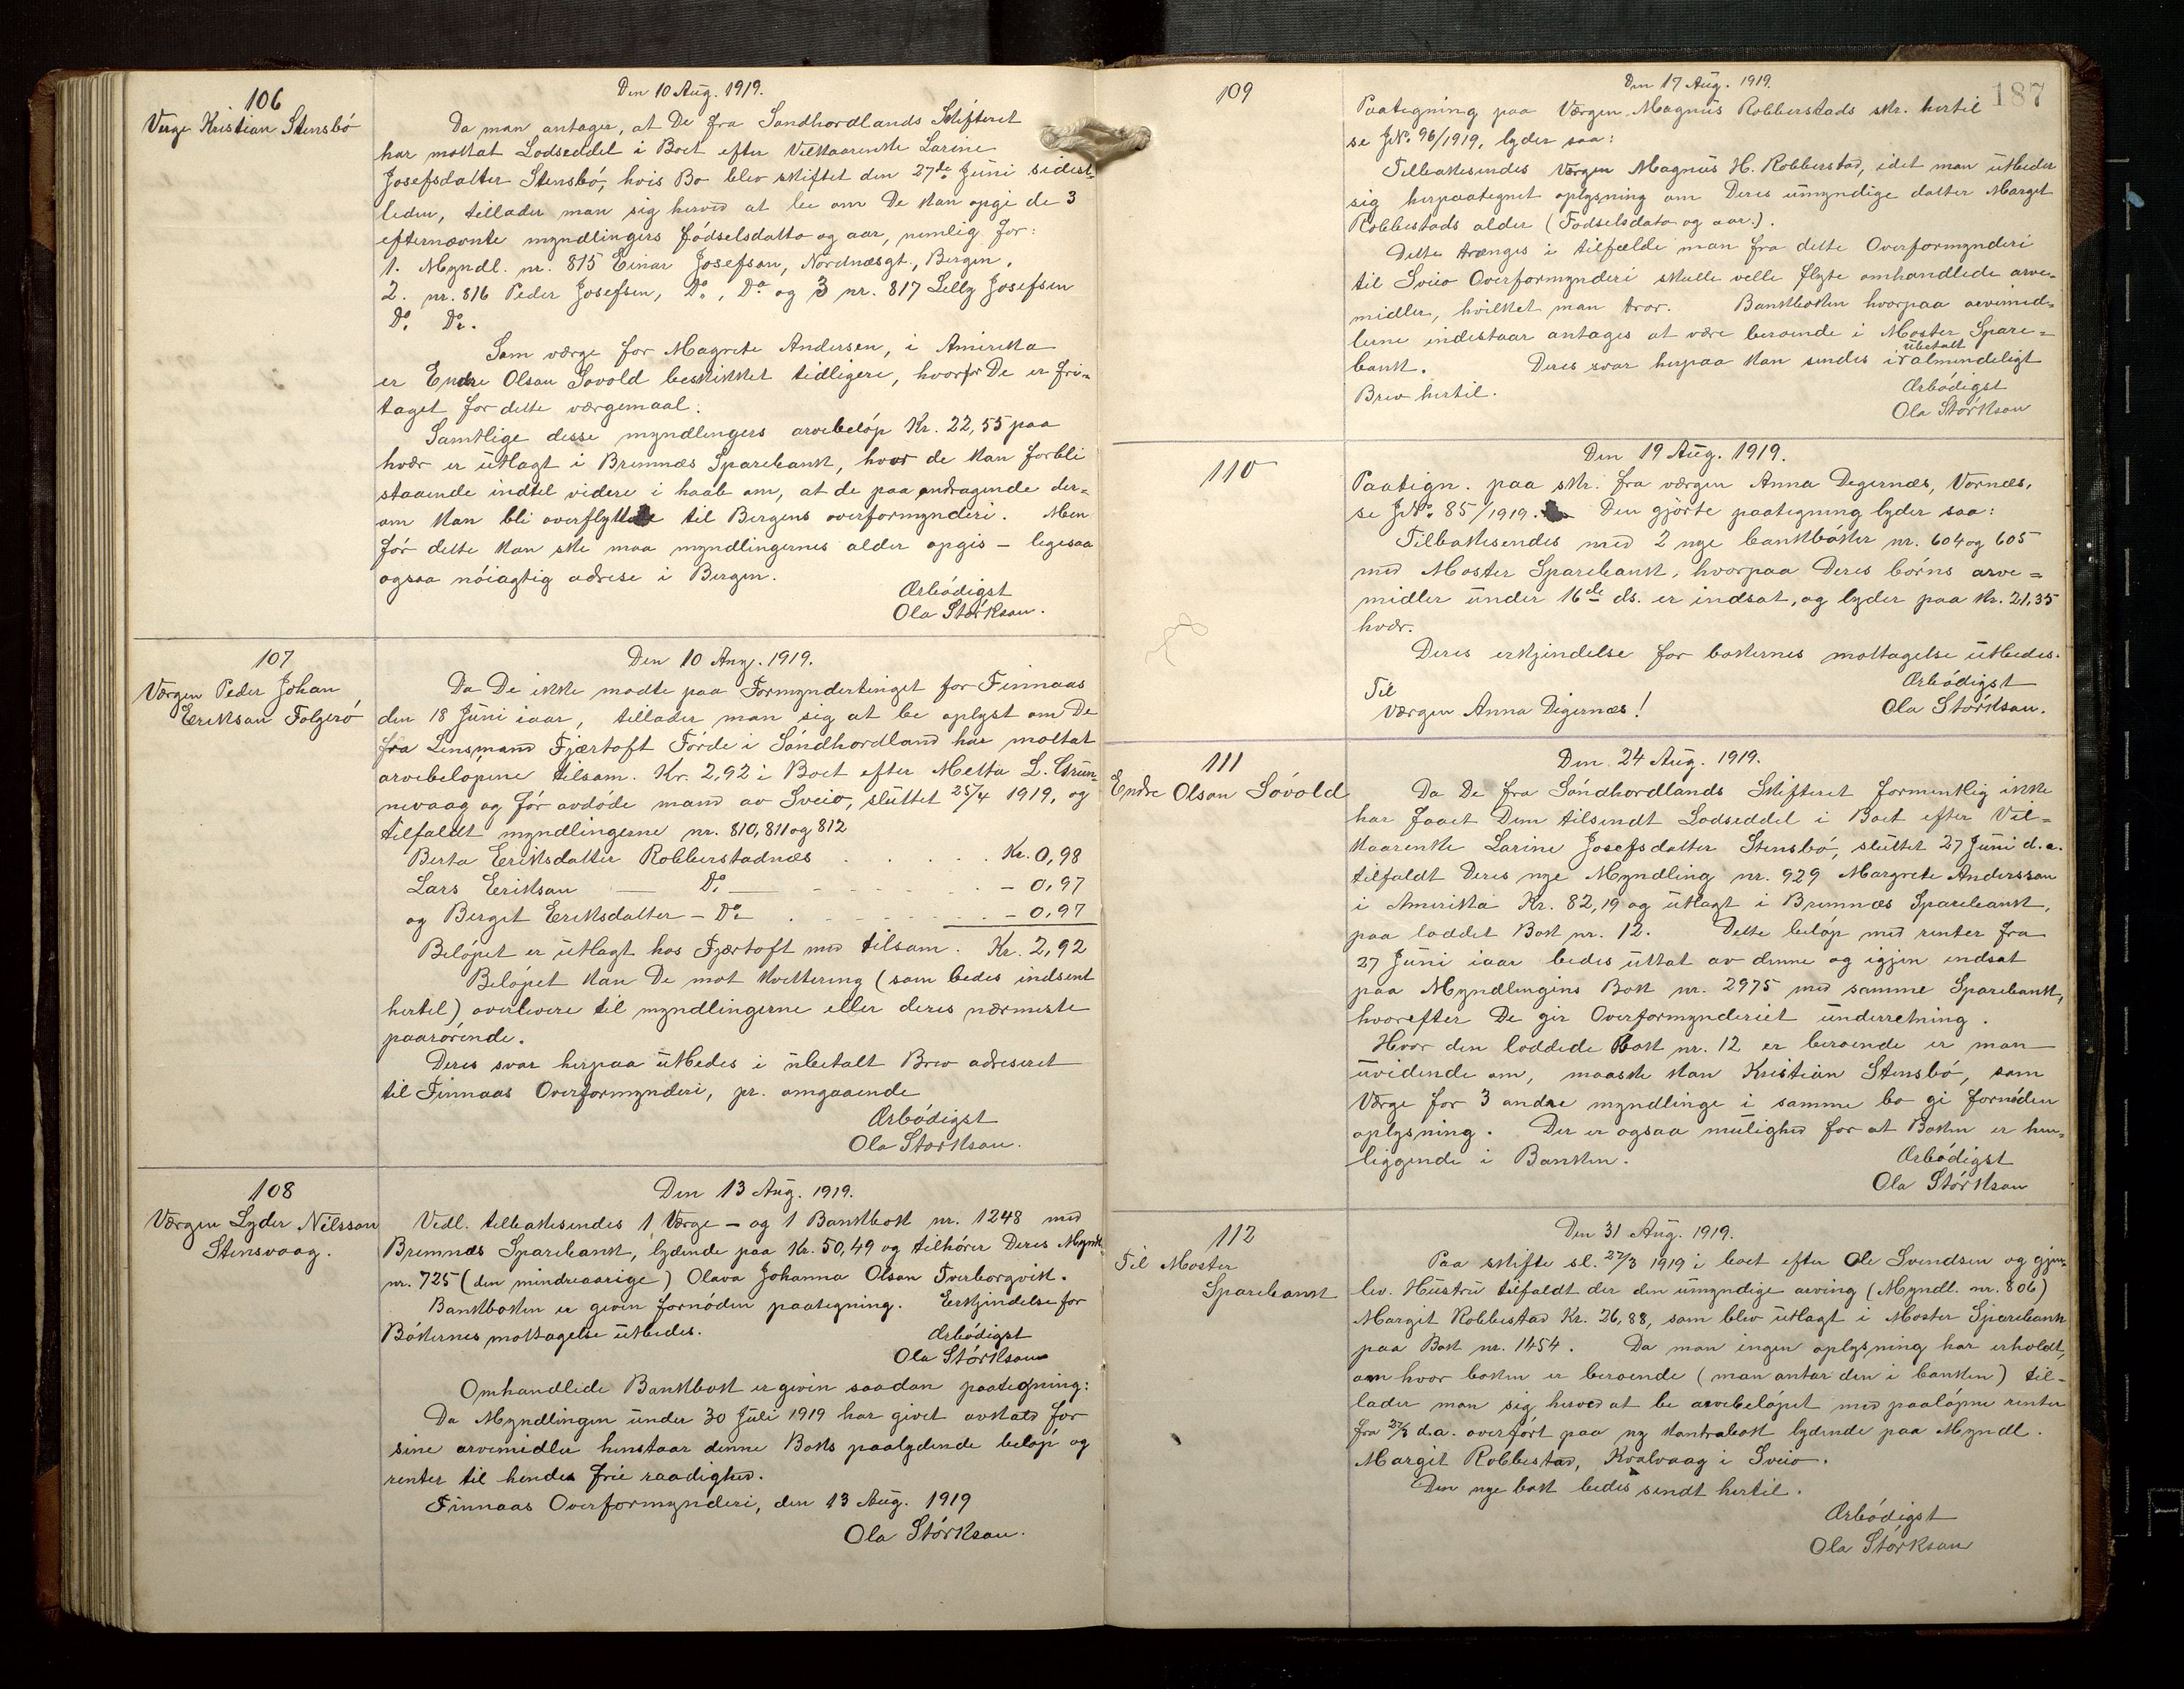 106
Verge Kristian Stensbó
Den 10 Aug. 1919.
Da man antager, at De fra Sondhordlands Skifteret
har mottat Lodseddel i Boet efter Velkaarenke Larine
Josefsdatter Stensbó, hvis Bo blev skiftet den 27de Juni sidest-
leden, tillader man sig herved at bee om De kan opgi de 3
efternævnte myndlingers fódselsdatto og aar, nemlig for:
1. Myndl. nr. 815 Einar Josefson, Nordnæsgt., Bergen,
2. nr. 816 Peder Josefsen, Do., Do. og 3 nr. 817 Lelly Josefsen
Do. Do.
Som værge for Magrete Andersen, i Amirika
er Endre Olson Sovold beskikket tidligere, hvorfor De er fri-
taget for dette værgemaal.
Samtlige disse myndlingers arvebelóp Kr. 22,55 paa
hvær er utlagt i Bremnæs Sparebank, hvor de kan forbli
staaende indtil videre i haab om, at de paa andragende der-
om kan bli overflyttede til Bergens overformynderi. Men
fór dette kan ske maa myndlingernes alder opgis - legesaa
ogsaa nóiagtig adrese i Bergen.
Ærbódigst
Ola Stórkson.
107
Værgen Peder Johan
Erikson Folgeró
Den 10 Aug. 1919.
Da De ikke modte paa Formyndertinget for Finnaas
den 18 Juni iaar, tillader man sig at be oplyst om De
fra Lensmand Fjærtoft Fórde i Sóndhordland har mottat
arvebelópene tilsam. Kr. 2,92 i Boet efter Metta L. Grün-
nevaag og fór avdóde mand av Sveio, sluttet 25/4 1919, og
tilfaldt myndlingerne nr. 810, 811 og 812
Berta Eriksdatter Robberstadnæs . . . . . Kr. 0,98
Lars Erikson — Do. — - - - - - - - 0,97
og Berget Eriksdatter - Do. . - - - - - - - 0,97
Belópet er utlagt hos Fjærtoft med tilsam. Kr. 2,92
Belópet kan De mot kvettering (som bedes indsent
hertil) overlevere til myndlingerne eller deres nærmeste
paarórende.
Deres svar herpaa utbedes i ubetalt Brev adreseret
til Finnaas Overformynderi, pr. omgaaende
Ærbódigst
Ola Storkson.
108
Værgen Lyder Nilsson
Stensvaag.
Den 13 Aug. 1919.
Vedl. tilbakesendes 1 Værge - og 1 Bankbok nr. 1248 med
Bremnæs Sparebank, lydende paa Kr. 50,49 og tilhórer Deres Myndl.
nr. 725 (den mindreaarige) Olava Johanna Olson Tverborgvik.
Bankboken er given fornóden paategning. Erkjendelse for
Bókernes mottagelse utbedes.
Ærbódigst
Ola Stórkson
Omhandlede Bankbok er given saadan paategning:
Da Myndlingen under 30 Juli 1919 har givet avkald for
sine arvemidler henstaar denne Boks paalydende belóp og
renter til hendes frie raadighed.
Finnaas Overformynderi, den 13 Aug. 1919
Ola Stórkson.
187
109
Den 17 Aug. 1919.
Paategning paa Værgen Magnus Robberstads skr. hertil
se JNo. 96/1919, lyder saa:
Tilbakesendes Værgen Magnus H. Robberstad, idet man utbeder
sig herpaategnet oplysning om Deres umyndige datter Margit
Robbestads alder (Fodselsdato og aar.).
Dette trænges i tilfælde man fra dette Overformynderi
til Sveio Overformynderi skulle velle flyte omhandlede arve-
midler, hvilket man tror. Bankboken hvorpaa arvemid-
lerne indestaar antages at være beroende i Moster Spare-
bank. Deres svar herpaa kan sendes i ubetalt almindeligt
Brev hertil.
Ærbódigst
Ola Stórkson
110
Den 19 Aug. 1919.
Paategn. paa skr. fra værgen Anna Degernæs, Vornæs,
se JNo. 85/1919. Den gjórte paategning lyder saa:
Tilbakesendes med 2 nye bankbóker nr. 604 og 605
med Moster Sparebank, hvorpaa Deres bórns arve-
midler under 16de ds. er indsat, og lyder paa Kr. 21,35
hvær.
Deres erkjendelse for bokernes mottagelse utbedes.
Ærbódigst
Ola Stórkson.
Til
Værgen Anna Digernæs!
111
Endre Olson Sóvold
Den 24 Aug. 1919.
Da De fra Sóndhordlands Skifteret formentlig ikke
har faaet Dem tilsendt Lodseddel i Boet efter Vil-
kaarenke Larine Josefsdatter Stensbó, sluttet 27 Juni d.a.
tilfaldt Deres nye Myndling nr. 929 Margrete Andersson
i Amirika Kr. 82,19 og utlagt i Bremnæs Sparebank,
paa loddet Bok nr. 12. Dette belóp med renter fra
27 Juni iaar bedes uttat av denne og igjen indsat
paa Myndlingens Bok nr. 2975 med samme Sparebank,
hvorefter De gir Overformynderiet underretning.
Hvor den loddede Bok nr. 12 er beroende er man
uvidende om, maaske kan Kristian Stensbó, som
Værge for 3 andre myndlinge i samme bo gi fornóden
oplysning. Der er ogsaa mulighed for at Boken er hen-
liggende i Banken.
Ærbódigst
Ola Stórkson
112
Til Moster
Sparebank
Den 31 Aug. 1919.
Paa skifte sl. 27/3 1919 i boet efter Ole Svendsen og gjen-
lev. Hustru tilfaldt der den umyndige arving (Myndl. nr. 806)
Margit Robbestad Kr. 26,88, som blev utlagt i Moster Sparebank
paa Bok nr. 1454. Da man ingen oplysning har erholdt,
om hvor boken er beroende (man antar den i banken) til-
lader man sig herved at be arvebelópet med paalópne renter
fra 27/3 d.a. overfórt paa ny kontrabok lydende paa Myndl.
Margit Robbestad, Kvalvaag i Sveio.
Den nye bok bedes sendt hertil.
Ærbódigst
Ola Stórkson